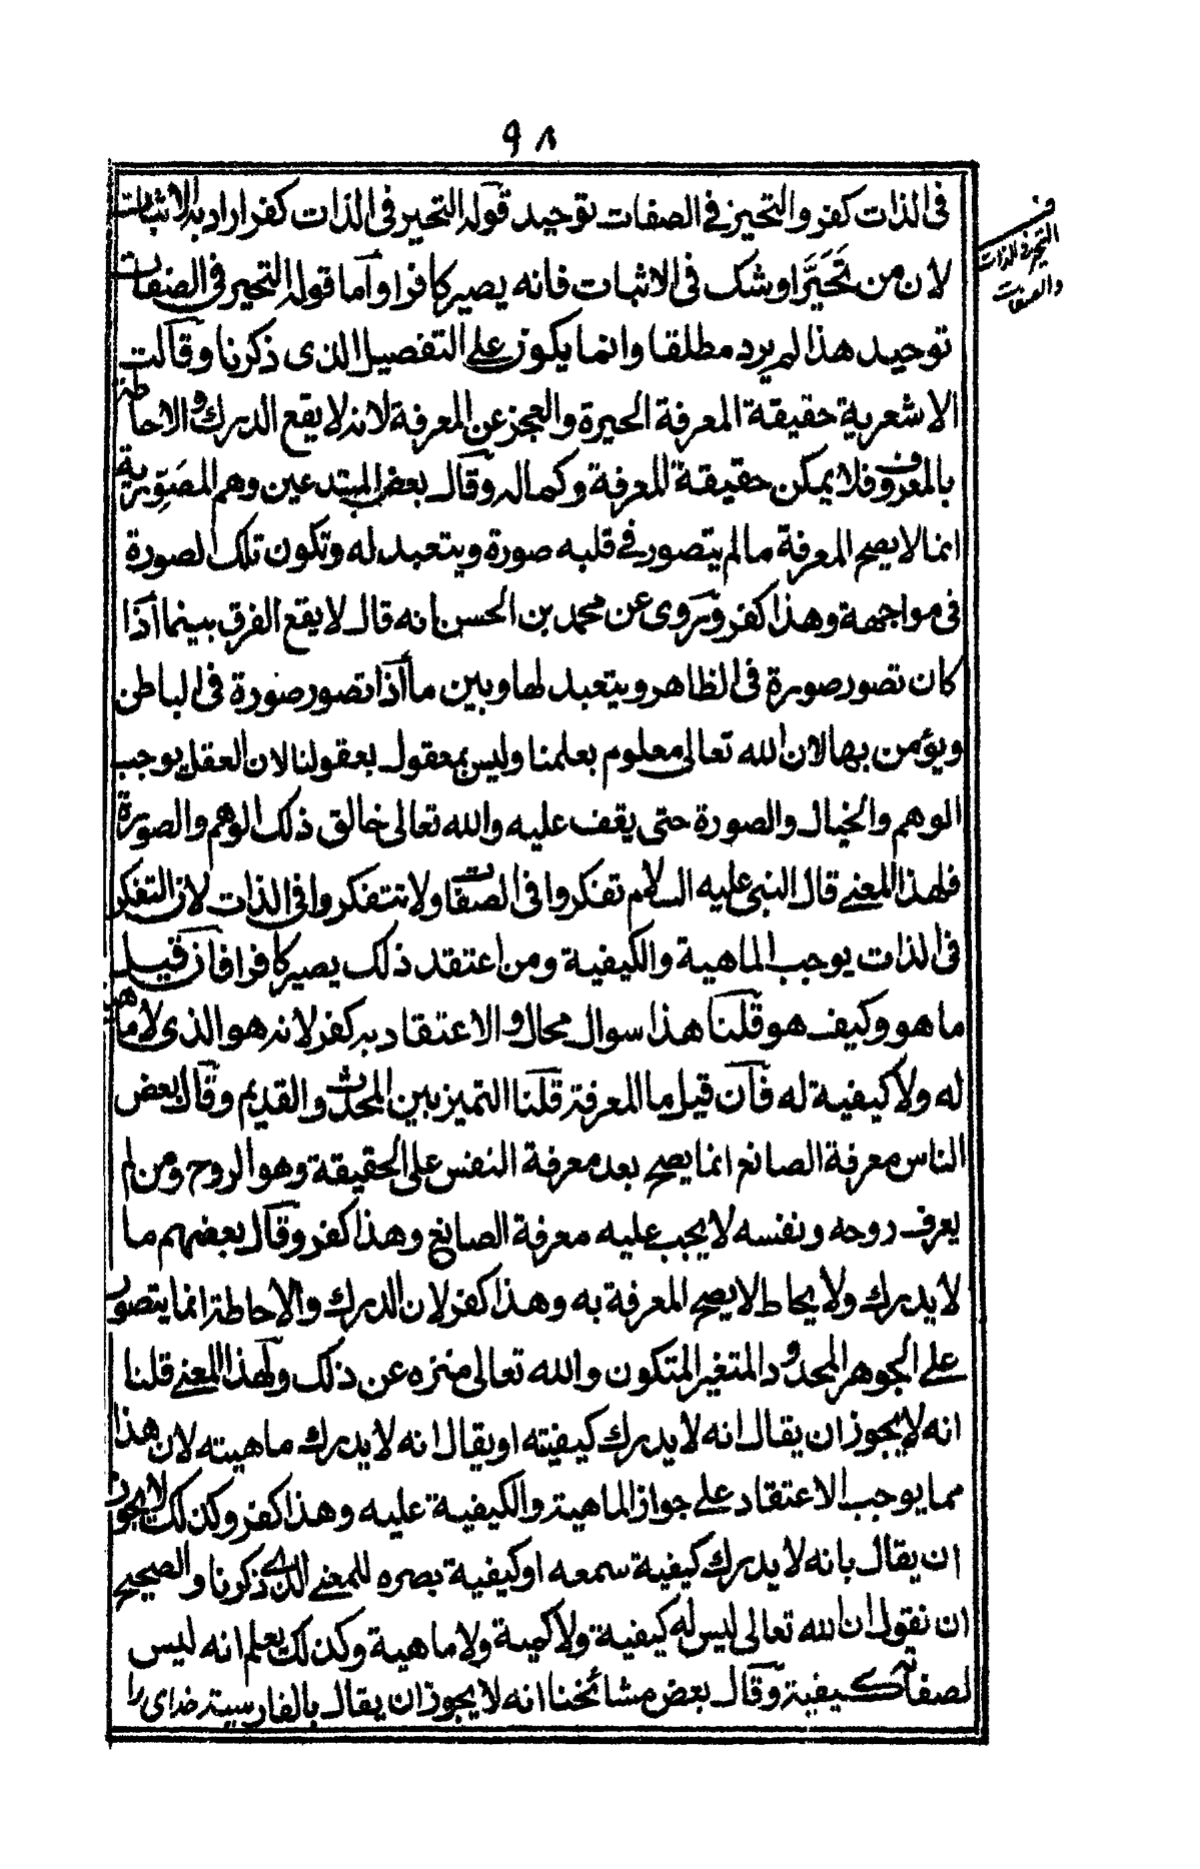 ٩٨
فى الذات كفر والتحيز فى الصفات توحيد قوله التحير فى الذات كفر اراد به الاثبات
لان من تَحَيَّرَ اوشك فى الاثبات فانه يصير كافرا واما قوله التحير فى الصفات
توحيد هذا لم يرد مطلقا وانما يكون على التفصيل الذى ذكرنا وقالت
الاشعرية حقيقة المعرفة الحيرة والعجز عن المعرفة لانه لا يقع الدرك والاحاطة
بالمعروف فلا يمكن حقيقة المعرفة وكماله وقال بعض المبتدعين وهم المصَوِّرية
انما لا يصح المعرفة مالم يتصور فى قلبه صورة ويتعبد له وتكون تلك الصورة
فى مواجهة وهذا كفر وروى عن محمد بن الحسن انه قال لا يقع الفرق بينما اذا
كان تصور صورة فى الظاهر ويتعبد لها وبين ما اذا تصور صورة فى الباطن
ويؤمن بها لان الله تعالى معلوم بعلمنا وليس بمعقول بعقولنا لان العقل يوجب
الوهم والخيال والصورة حتى يقف عليه والله تعالى خالق ذلك الوهم والصورة
فلهذا المعنى قال النبى عليه السلام تفكروا فى الصفات ولا تتفكروا فى الذات لان التفكر
فى الذات يوجب الماهية والكيفية ومن اعتقد ذلك يصير كافرا فان قيل
ما هو وكيف هو قلنا هذا سوال محال والاعتقاد به كفر لانه هو الذى لا ماهية
له ولا كيفية له فان قيل ما المعرفة قلنا التميز بين المحدث والقديم وقال بعض
الناس معرفة الصانع انما يصح بعد معرفة النفس على الحقيقة وهو الروح ومن لم
يعرف روحه ونفسه لا يجب عليه معرفة الصانع وهذا كفر وقال بعضهم ما
لا يدرك ولا يحاط لا يصح المعرفة به وهذا كفر لان الدرك والاحاطة انما يتصور
على الجوهر المحدود المتغير المتكون والله تعالى منزه عن ذلك ولهذا المعنى قلنا
انه لا يجوز ان يقال انه لا يدرك كيفيته او يقال انه لا يدرك ماهيته لان هذا
مما يوجب الاعتقاد على جواز الماهية والكيفية عليه وهذا كفر وكذلك لا يجوز
ان يقال بانه لا يدرك كيفية سمعه او كيفية بصره للمعنى الذى ذكرنا والصحيح
ان نقول ان الله تعالى ليس له كيفية ولا كمية ولا ماهية وكذلك يعلم انه ليس
لصفاته كيفية وقال بعض مشائخنا انه لا يجوز ان يقال بالفارسية خداى را
ف
التحير فى الذات
والصفات